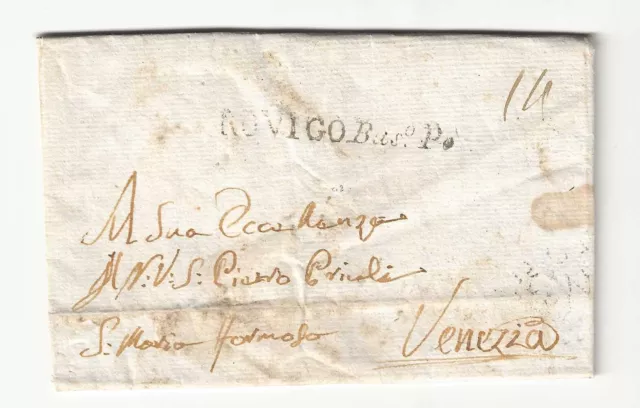 14
ROVIGO Bas.o P.o
A Sua Eccellenza
Il N: V: S: Pietro Priuli
S: Maria Formosa
Venezia